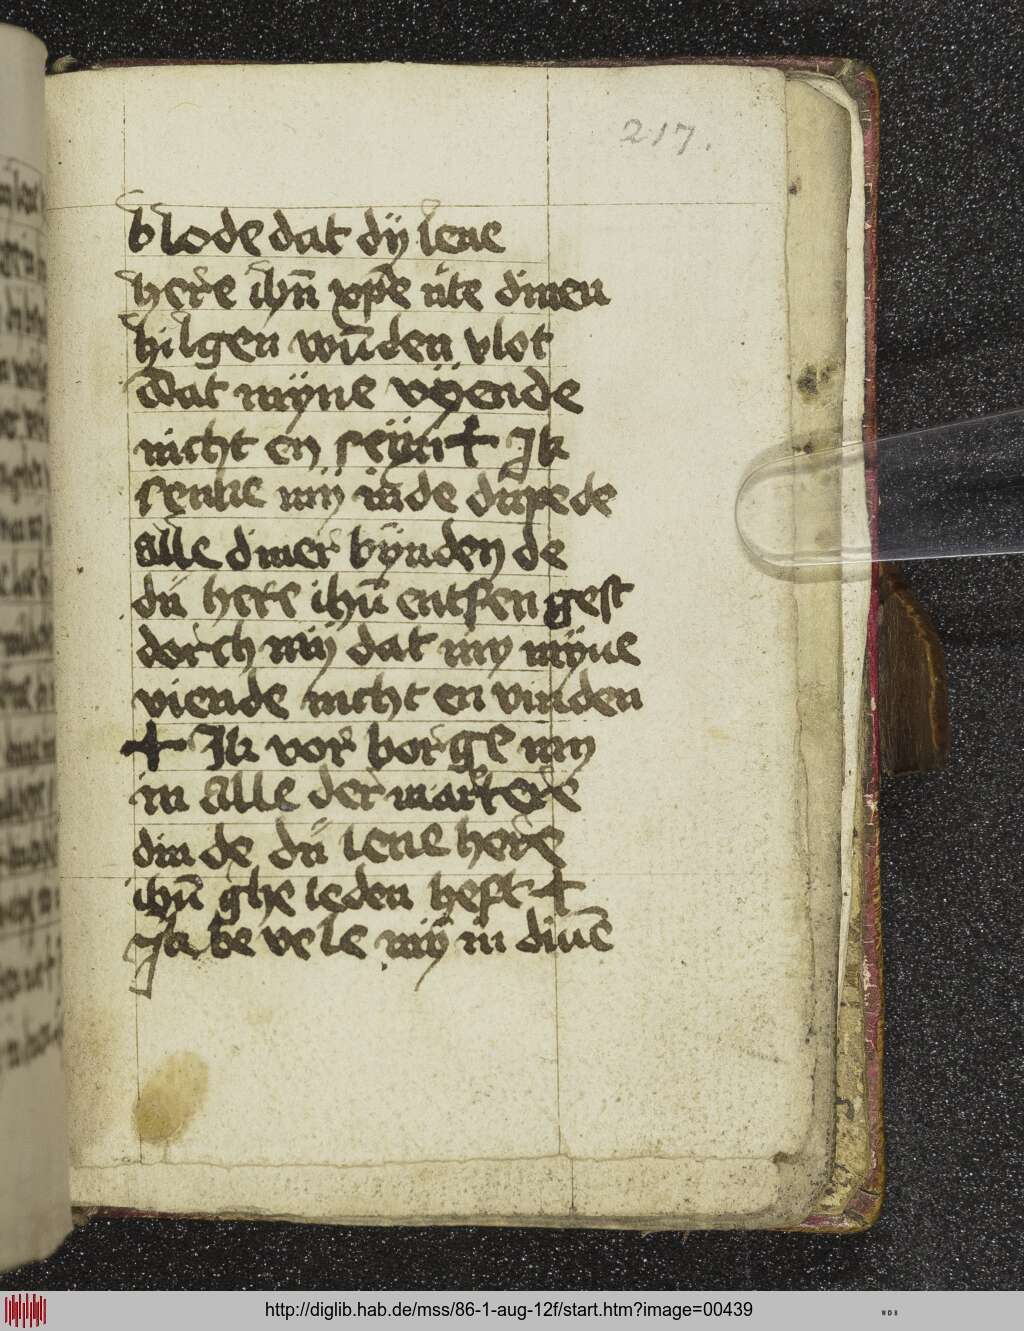 217.
blode dat dÿ leue
here ihu̅ xp̅e ute diner
hilgen wu̅den vlot
Dat mÿne vÿende
nicht en seÿn ✝ Ik
senke mÿ in de dupede
alle diner wunden de
du here ihu̅ entfengest
dorch mÿ dat my mÿne
viende nicht en vinden
✝ Ik vor borge my
in alle der martere
din de du leue here
ihu̅ ghe leden hefst ✝
Ik be vele mÿ in dine̅
http://diglib.hab.de/mss/86-1-aug-12f/start.htm?image=00439